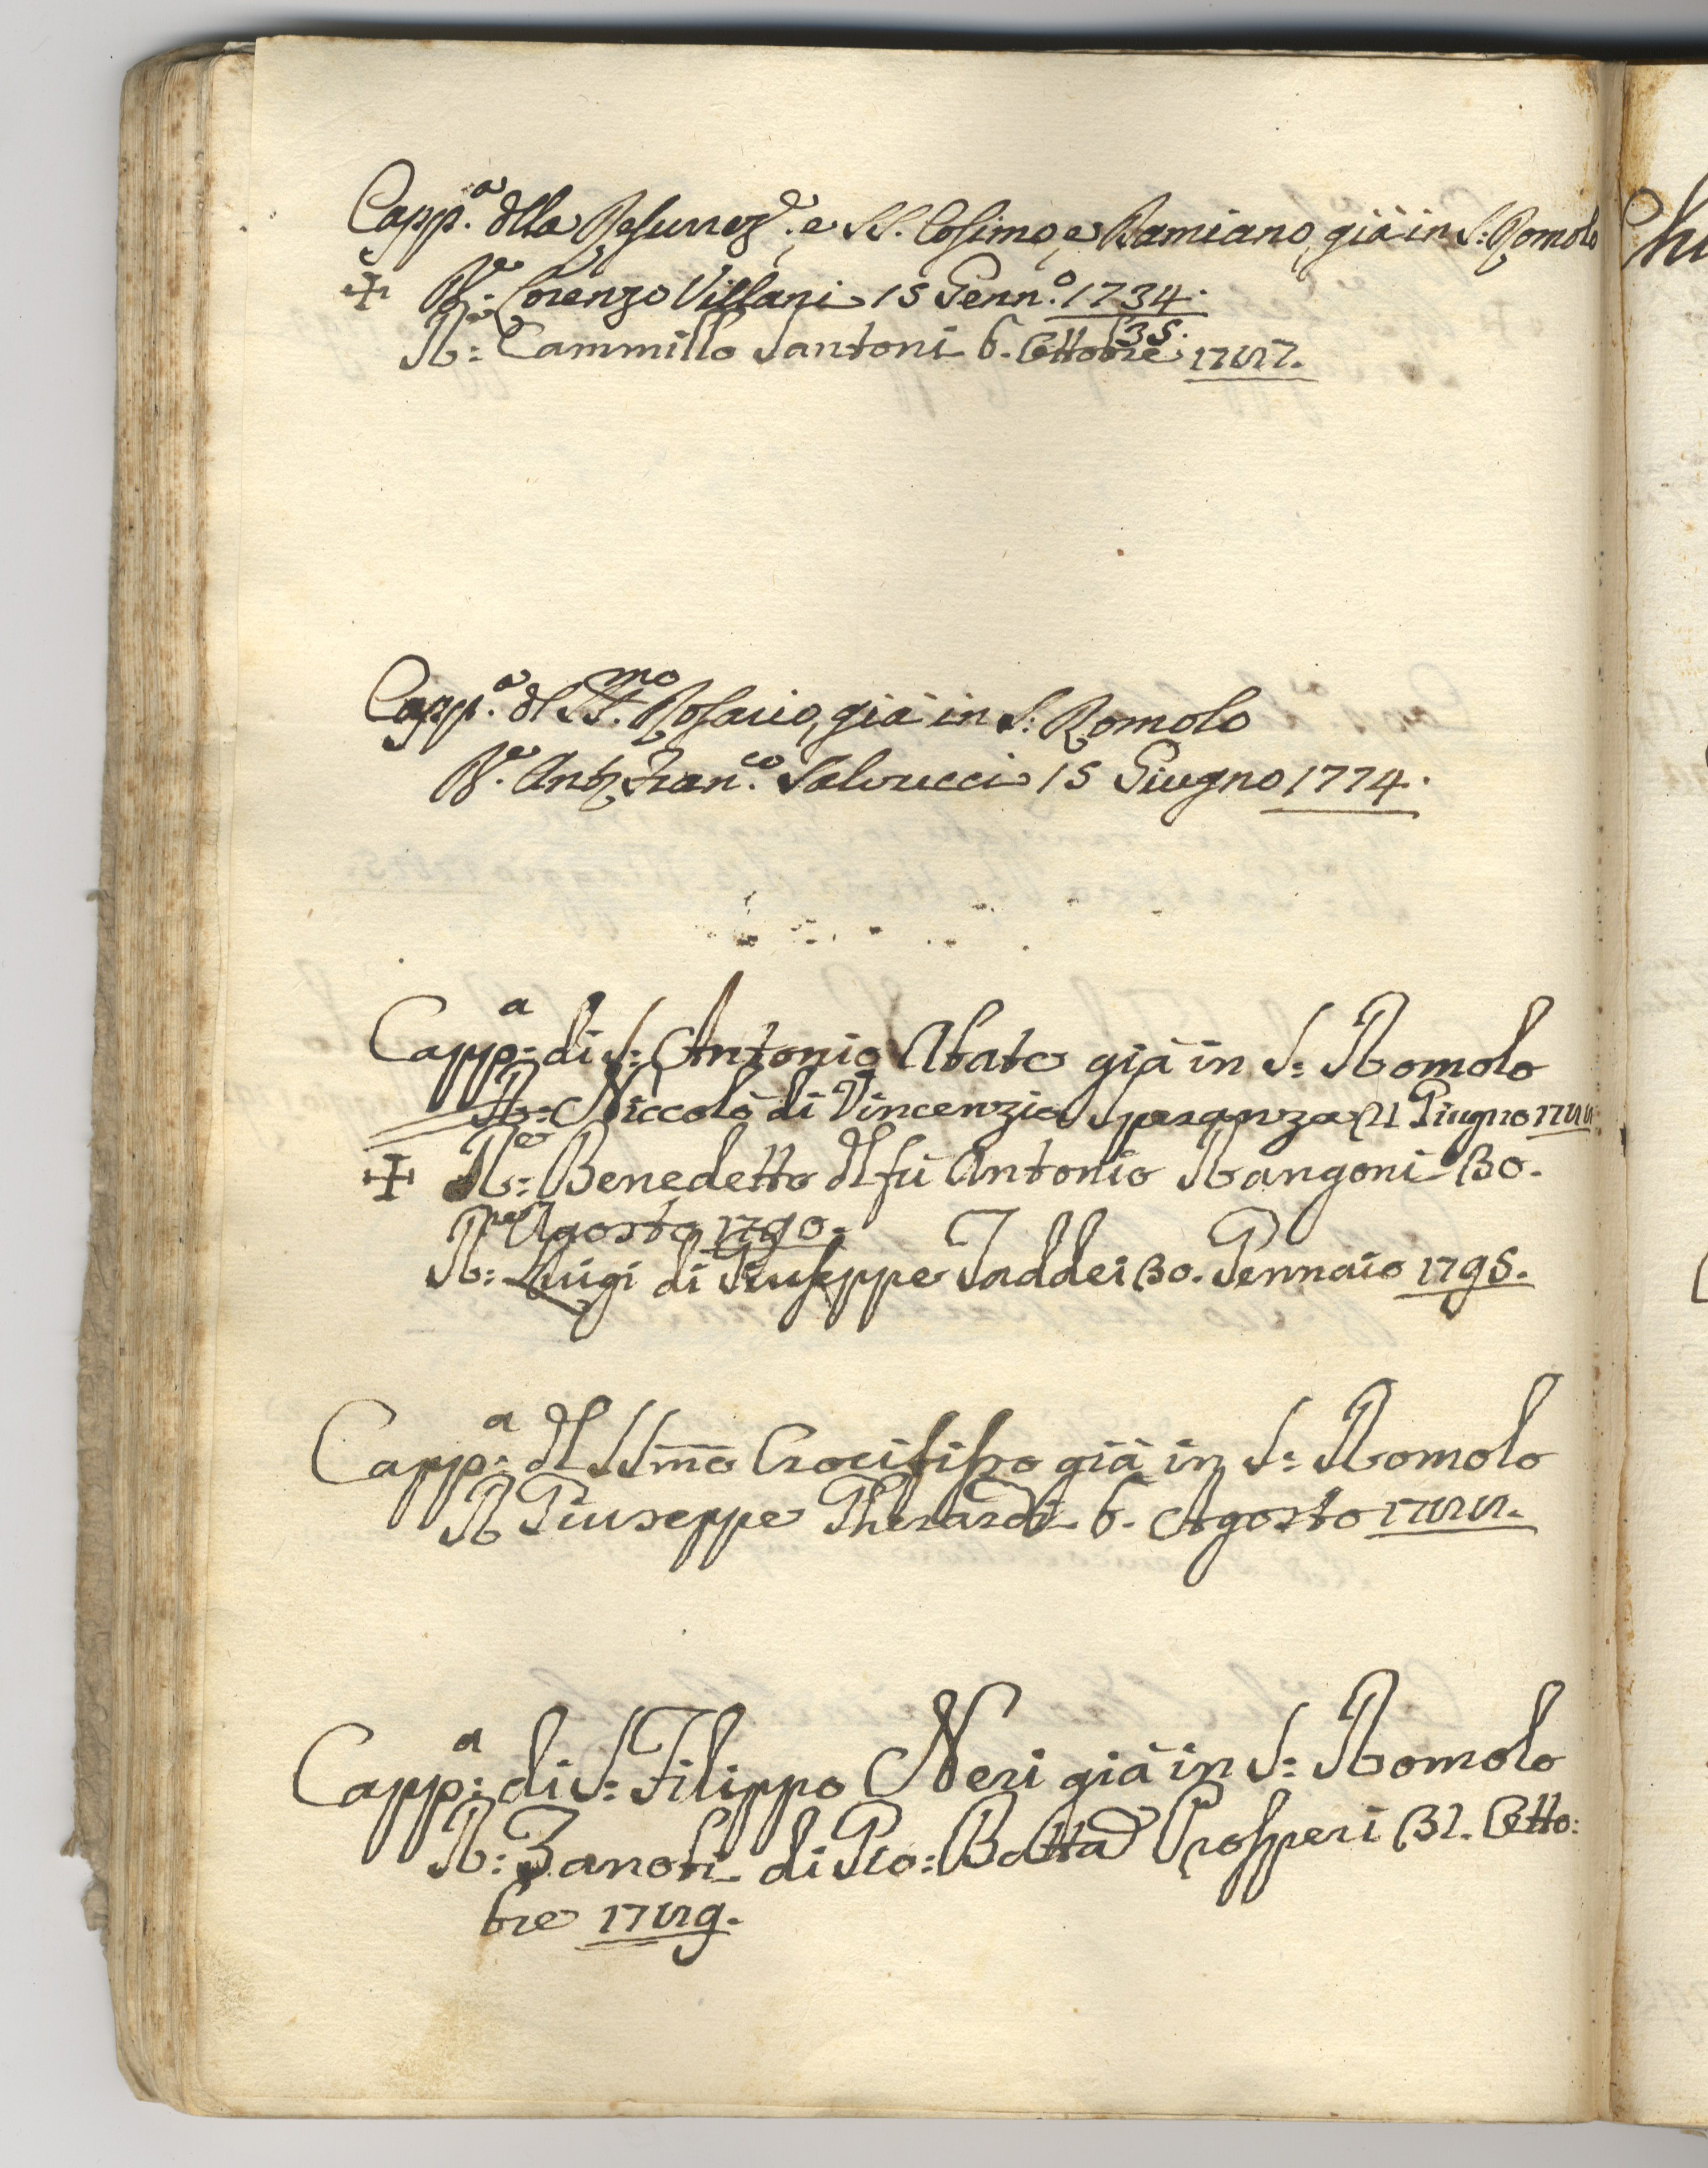 Capp.a dlla Resurrez.e e SS. Cosimo, e Damiano, già in S: Romolo
✠ Re. Lorenzo Villani 15 Genn.o 1734.
35.
Re: Cammillo Santoni 6. Ottobre 1787.
Capp.a dl SS.mo Rosario, già in S: Romolo
Re. Anto Fran.co Salvucci 15 Giugno 1774.
Capp:a di S: Antonio Abate già in S: Romolo
R: Niccolò di Vincenzio Speranza 21 Giugno 1788
✠ Re: Benedetto dl fù Antonio Rangoni 30.
Agosto 1790.
Re: Luigi di Giuseppe Taddei 30. Gennaio 1795.
Capp:a dl SSmo Crocifisso già in S: Romolo
R Giuseppe Gherardi 6. Agosto 1788.
Capp:a di S: Filippo Neri già in S: Romolo
R: Zanobi di Gio: Batta Prosperi 31. Otto:
bre 1789.